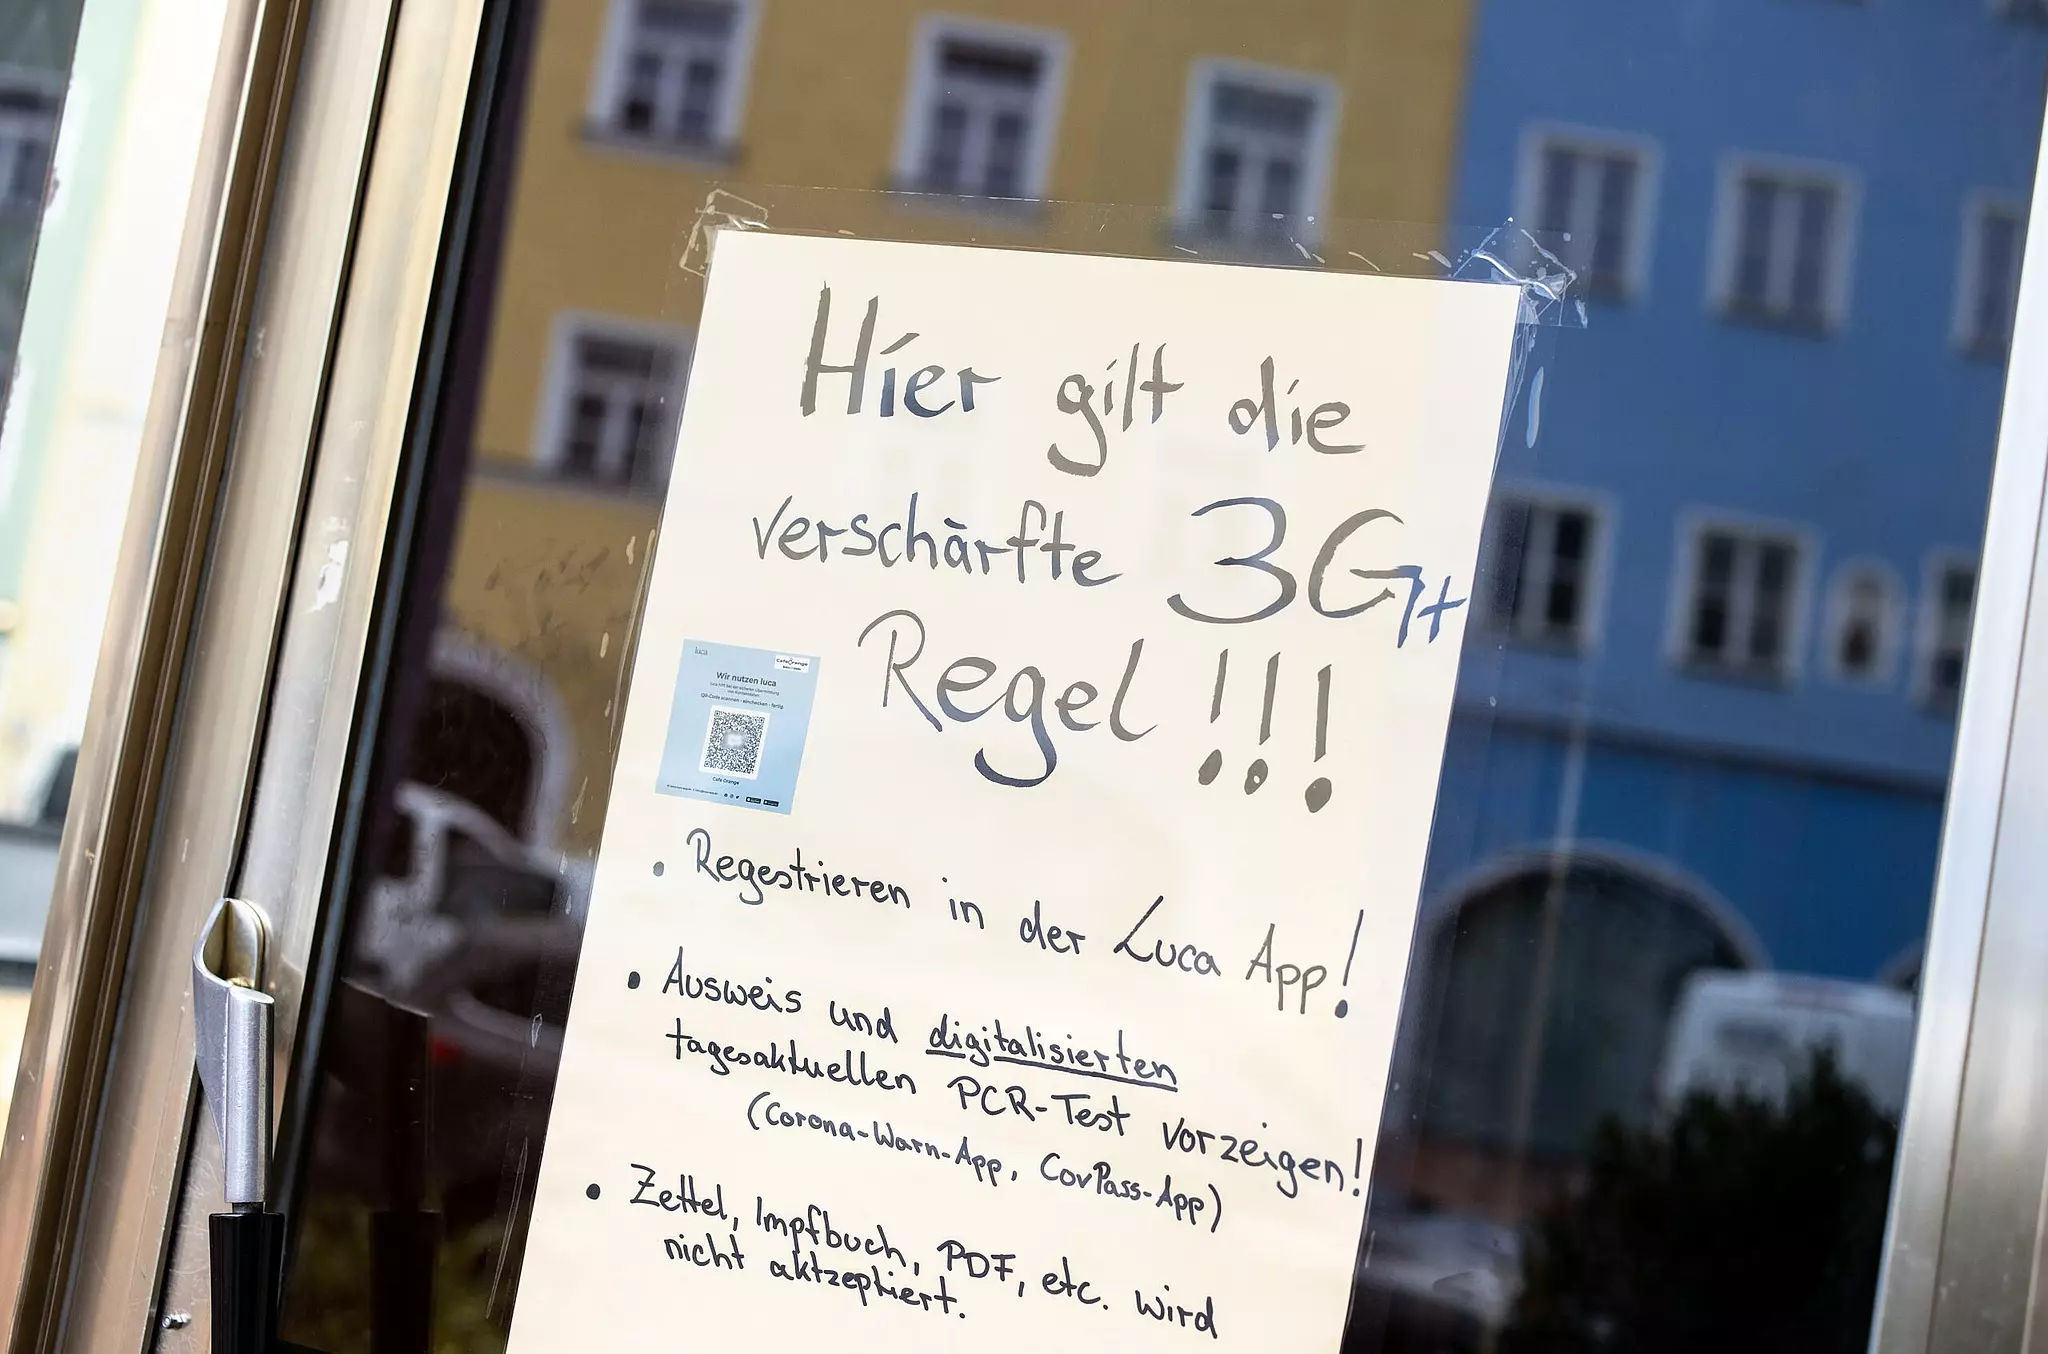 Hier gilt die
verschärfte 3G+
Regel!!!
luca
Cafe Orange
Wir nutzen luca
QR-Code scannen - einchecken - fertig
Cafe Orange
• Regestrieren in der Luca App!
• Ausweis und digitalisierten
tagesaktuellen PCR-Test vorzeigen!
(Corona-Warn-App, CovPass-App)
• Zettel, Impfbuch, PDF, etc. wird
nicht aktzeptiert.